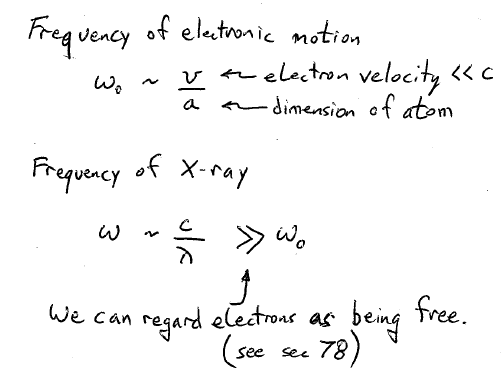 Frequency of electronic motion
ω₀ ~ v/a ← electron velocity << c
← dimension of atom
Frequency of X-ray
ω ~ c/λ >> ω₀
We can regard electrons as being free.
(see sec 78)